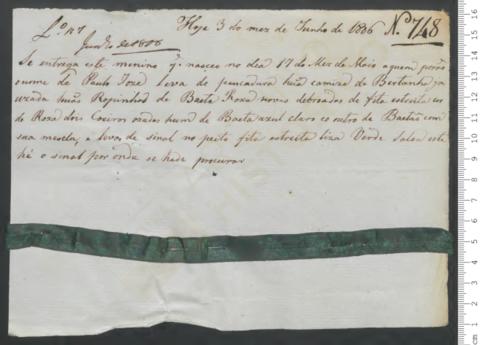 L.o n.o 7
Hoje 3 do mez de Junho de 1806 N.o 748
Junho de 1806
Se entrega este menino q. nasceo no dia 17 do Mez de Maio aquem porão
o nome de Paulo Jozé Leva de pencadura huã camiza de Bertanha ja
uzada huãs Roupinhas de Baeta Roxa novas debroadas de fita estreita cor
de Roza dois Coeiros uzados hum de Baeta azul claro eo outro de Baetão com
sua mescla, e leva de sinal no peito fita estreita liza Verde Salsa este
hé o sinal por onde se hade procurar
cm 1 2 3 4 5 6 7 8 9 10 11 12 13 14 15 16